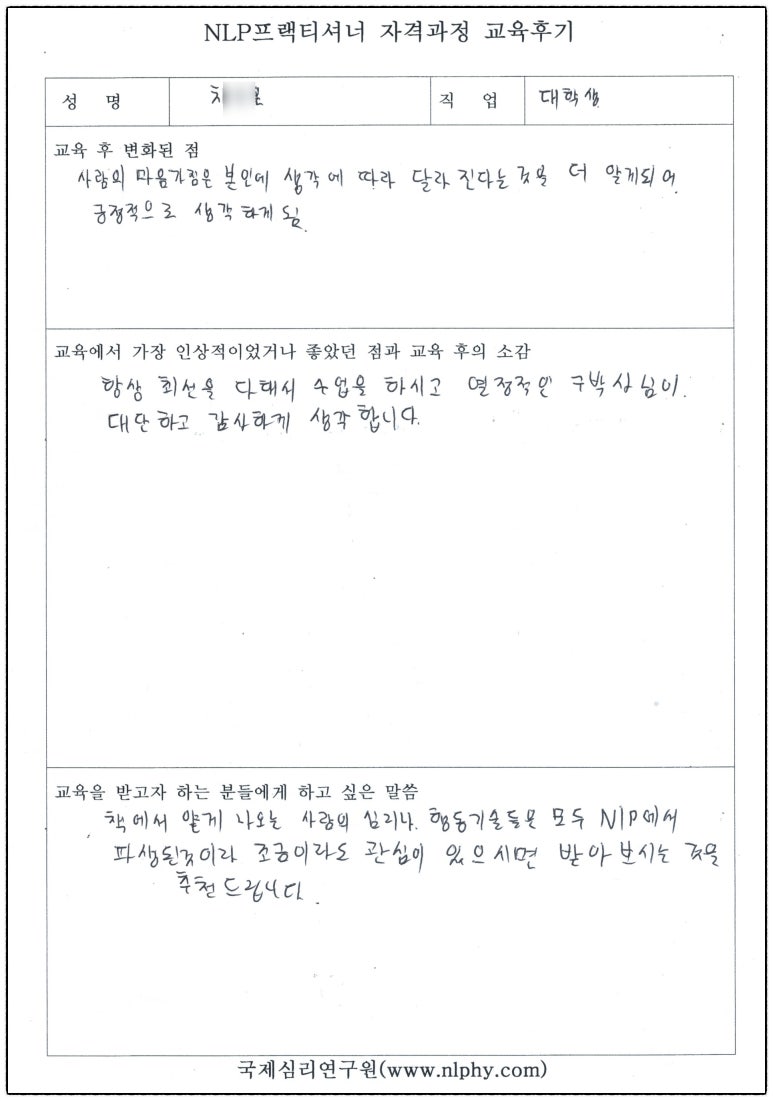 NLP프랙티셔너 자격과정 교육후기
성 명 직 업 대학생
교육 후 변화된 점
사람의 마음가짐은 본인에 생각에 따라 달라 진다는 것을 더 알게되어
긍정적으로 생각하게 됨.
교육에서 가장 인상적이었거나 좋았던 점과 교육 후의 소감
항상 최선을 다해서 수업을 하시고 열정적인 구박사님이
대단하고 감사하게 생각합니다.
교육을 받고자 하는 분들에게 하고 싶은 말씀
책에서 얕게 나오는 사람의 심리나 행동기술들은 모두 NLP에서
파생된것이라 조금이라도 관심이 있으시면 받아 보시는 것을
추천드립니다.
국제심리연구원(www.nlphy.com)